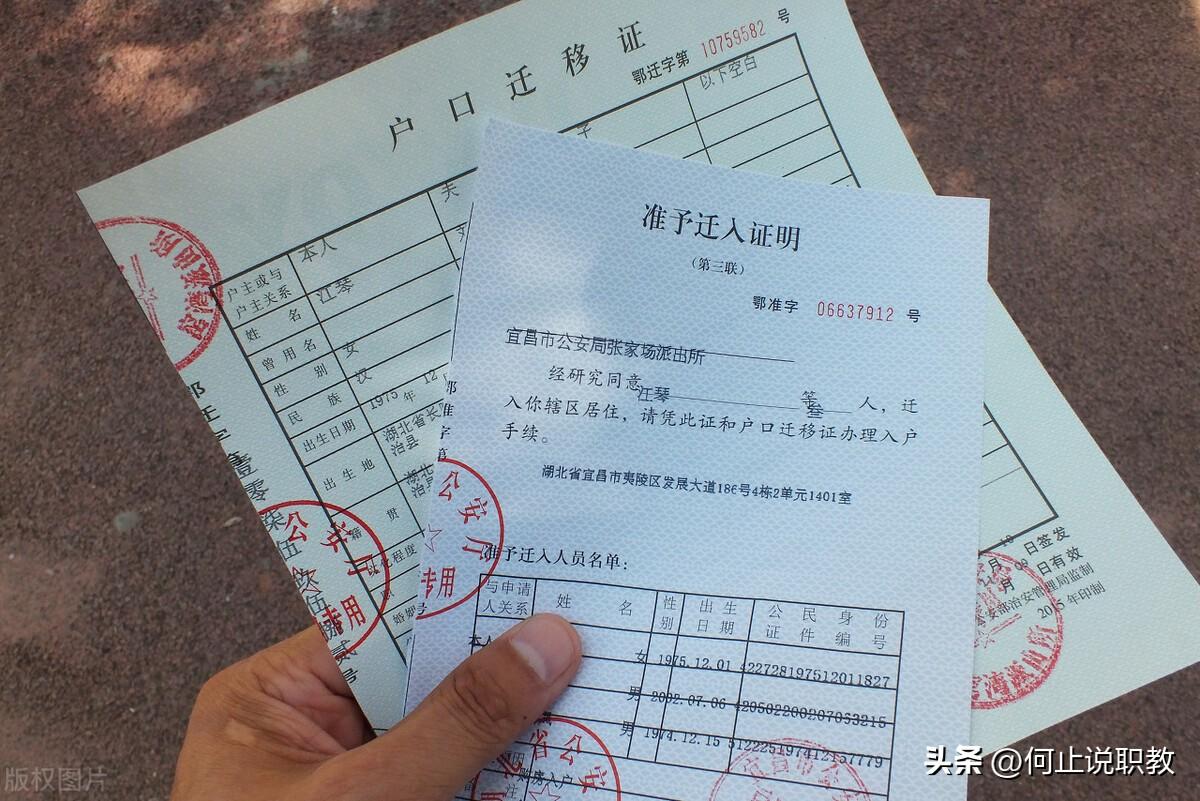 户口迁移证
鄂迁字第 10759582 号
以下空白
子
夫
户主或与
户主关系
本人
姓名
江琴
曾用名
性别
女
民族
汉
出生日期
1975年12
出生地
湖北省长
治县
籍贯
湖北
日签发
日有效
2015年印制
准予迁入证明
（第三联）
鄂准字 06637912 号
宜昌市公安局张家场派出所
经研究同意江琴等叁人，迁
入你辖区居住，请凭此证和户口迁移证办理入户
手续。
湖北省宜昌市夷陵区发展大道186号4栋2单元1401室
准予迁入人员名单：
与申请
人关系
姓名
性
别
出生
日期
公民身份
证件编号
本人
女 1975.12.01 422728197512011827
男 2002.07.06 420502200207063215
男 1974.12.15 512225197412157779
购房入户
公安厅
专用
版权图片
头条 @何止说职教